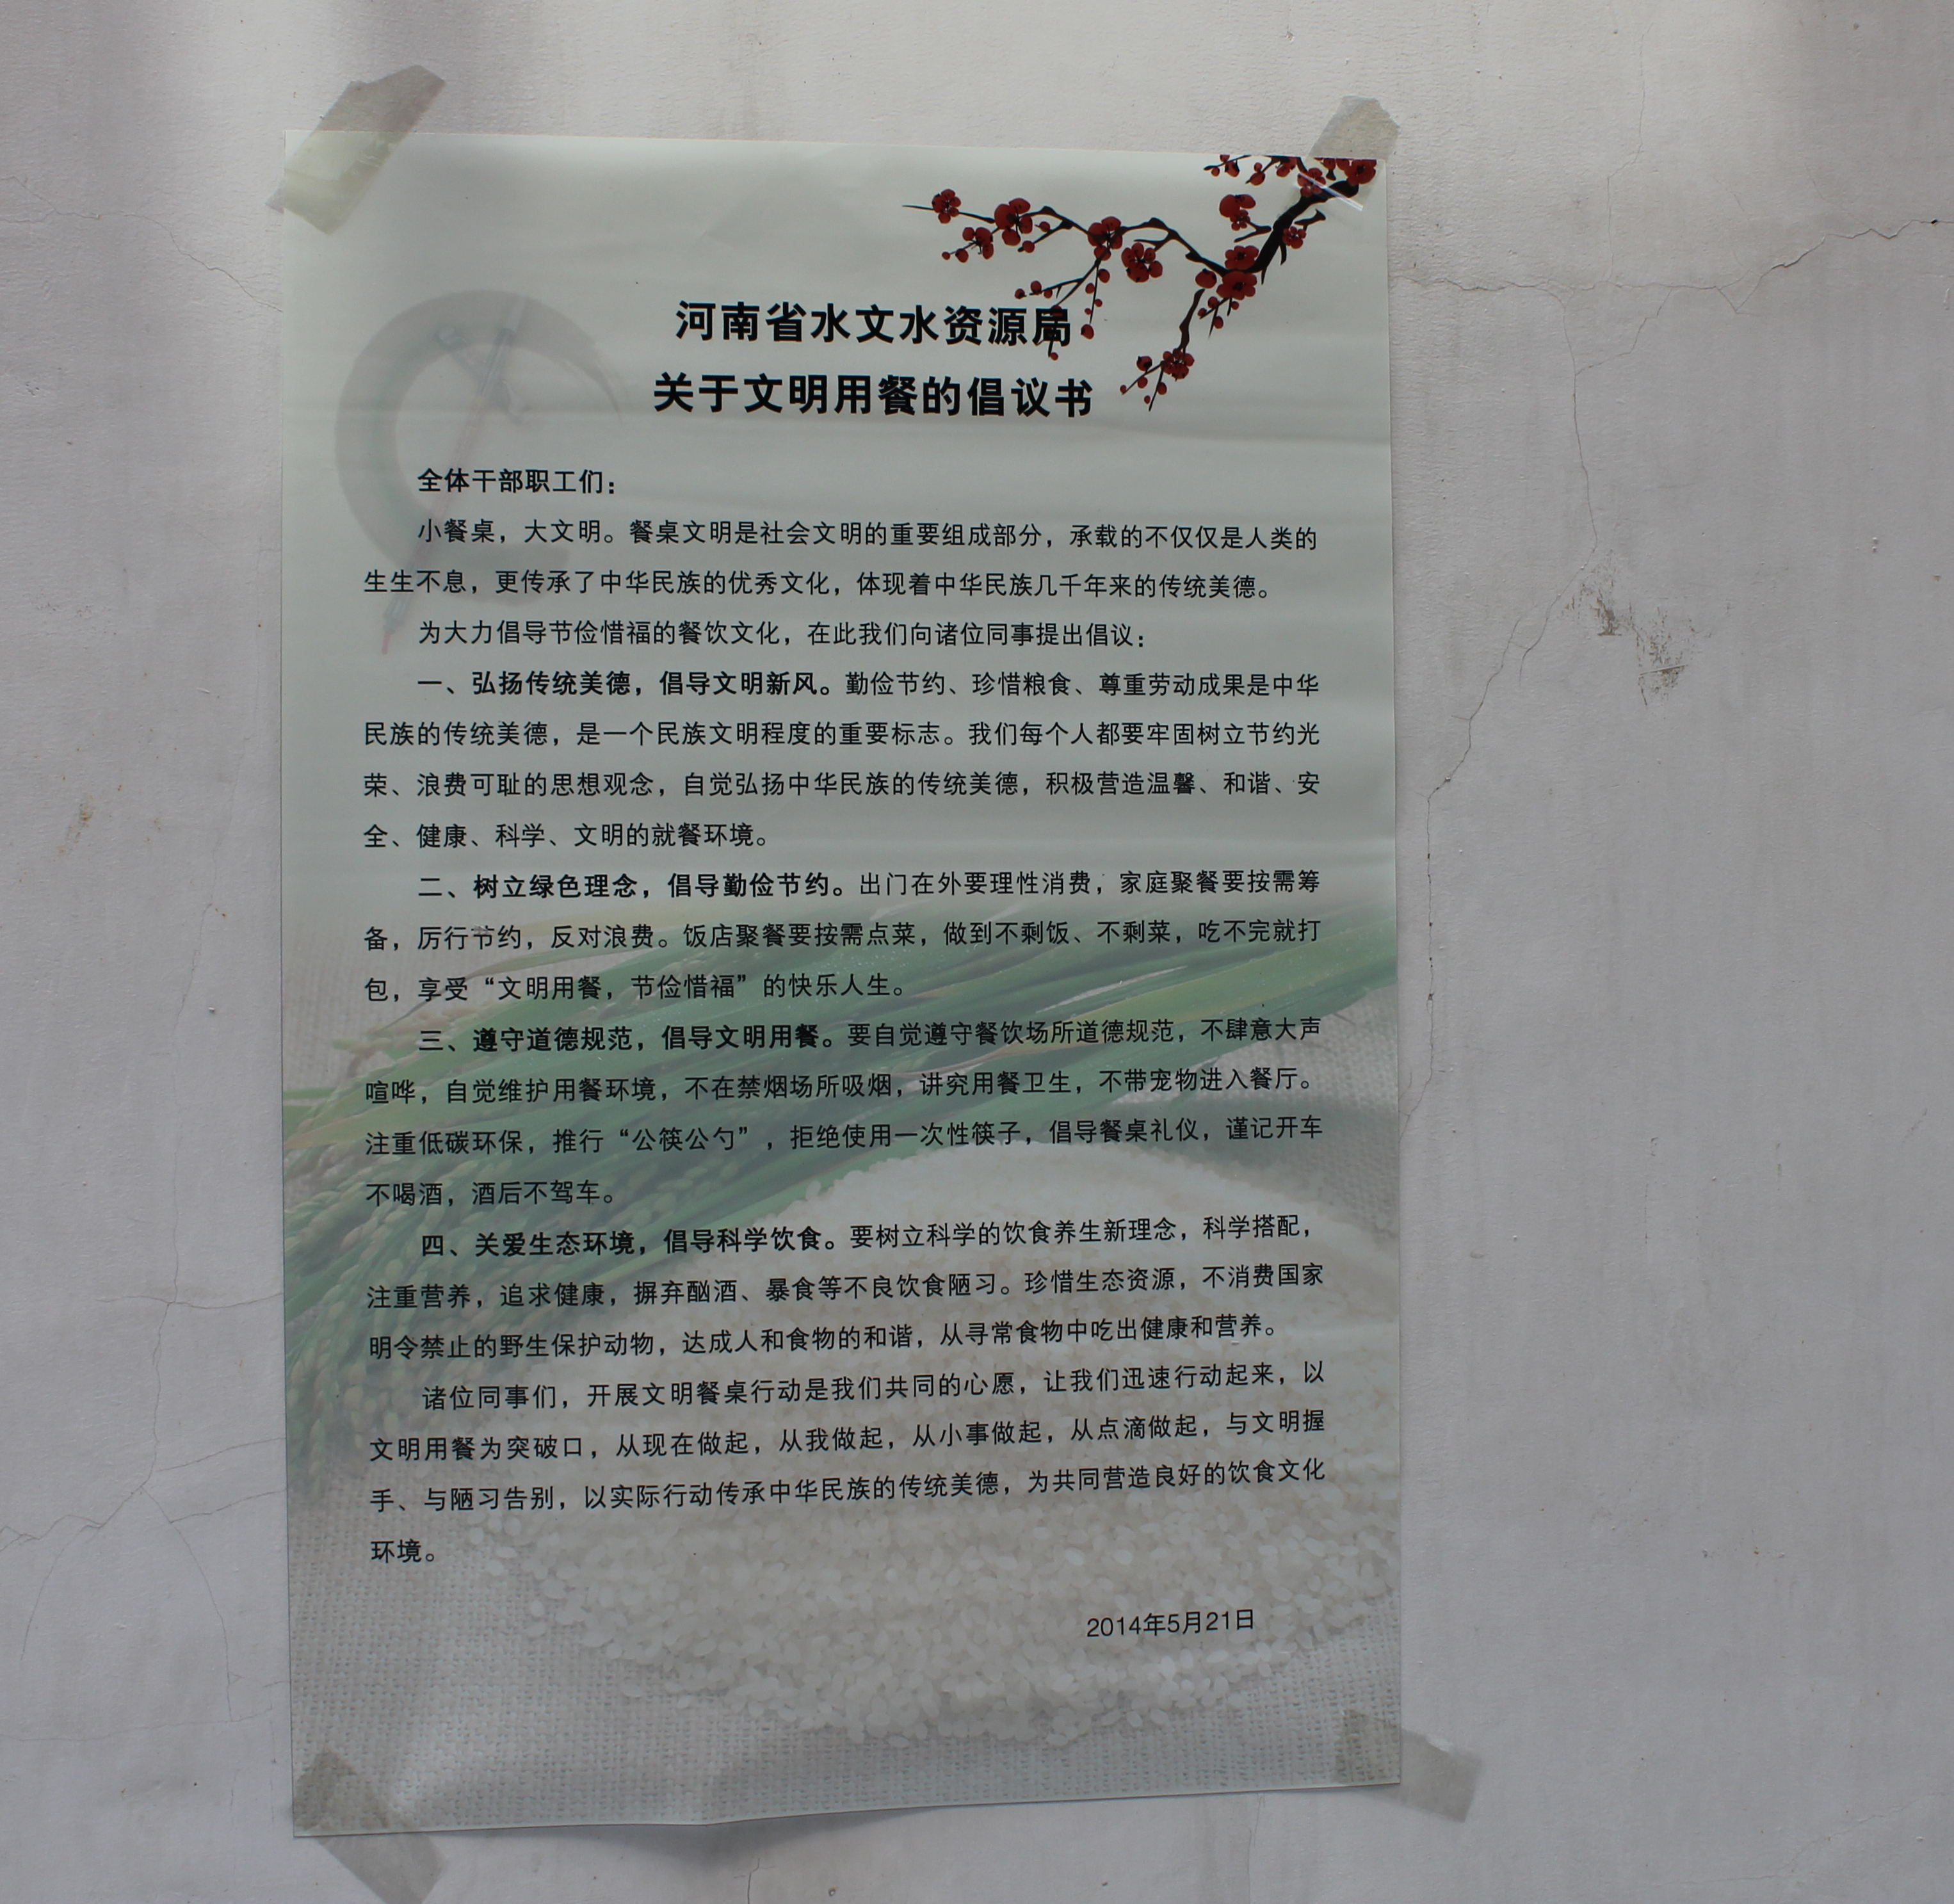 河南省水文水资源局
关于文明用餐的倡议书
全体干部职工们：
小餐桌，大文明。餐桌文明是社会文明的重要组成部分，承载的不仅仅是人类的
生生不息，更传承了中华民族的优秀文化，体现着中华民族几千年来的传统美德。
为大力倡导节俭惜福的餐饮文化，在此我们向诸位同事提出倡议：
一、弘扬传统美德，倡导文明新风。勤俭节约、珍惜粮食、尊重劳动成果是中华
民族的传统美德，是一个民族文明程度的重要标志。我们每个人都要牢固树立节约光
荣、浪费可耻的思想观念，自觉弘扬中华民族的传统美德，积极营造温馨、和谐、安
全、健康、科学、文明的就餐环境。
二、树立绿色理念，倡导勤俭节约。出门在外要理性消费，家庭聚餐要按需筹
备，厉行节约，反对浪费。饭店聚餐要按需点菜，做到不剩饭、不剩菜，吃不完就打
包，享受“文明用餐，节俭惜福”的快乐人生。
三、遵守道德规范，倡导文明用餐。要自觉遵守餐饮场所道德规范，不肆意大声
喧哗，自觉维护用餐环境，不在禁烟场所吸烟，讲究用餐卫生，不带宠物进入餐厅。
注重低碳环保，推行“公筷公勺”，拒绝使用一次性筷子，倡导餐桌礼仪，谨记开车
不喝酒，酒后不驾车。
四、关爱生态环境，倡导科学饮食。要树立科学的饮食养生新理念，科学搭配，
注重营养，追求健康，摒弃酗酒、暴食等不良饮食陋习。珍惜生态资源，不消费国家
明令禁止的野生保护动物，达成人和食物的和谐，从寻常食物中吃出健康和营养。
诸位同事们，开展文明餐桌行动是我们共同的心愿，让我们迅速行动起来，以
文明用餐为突破口，从现在做起，从我做起，从小事做起，从点滴做起，与文明握
手、与陋习告别，以实际行动传承中华民族的传统美德，为共同营造良好的饮食文化
环境。
2014年5月21日